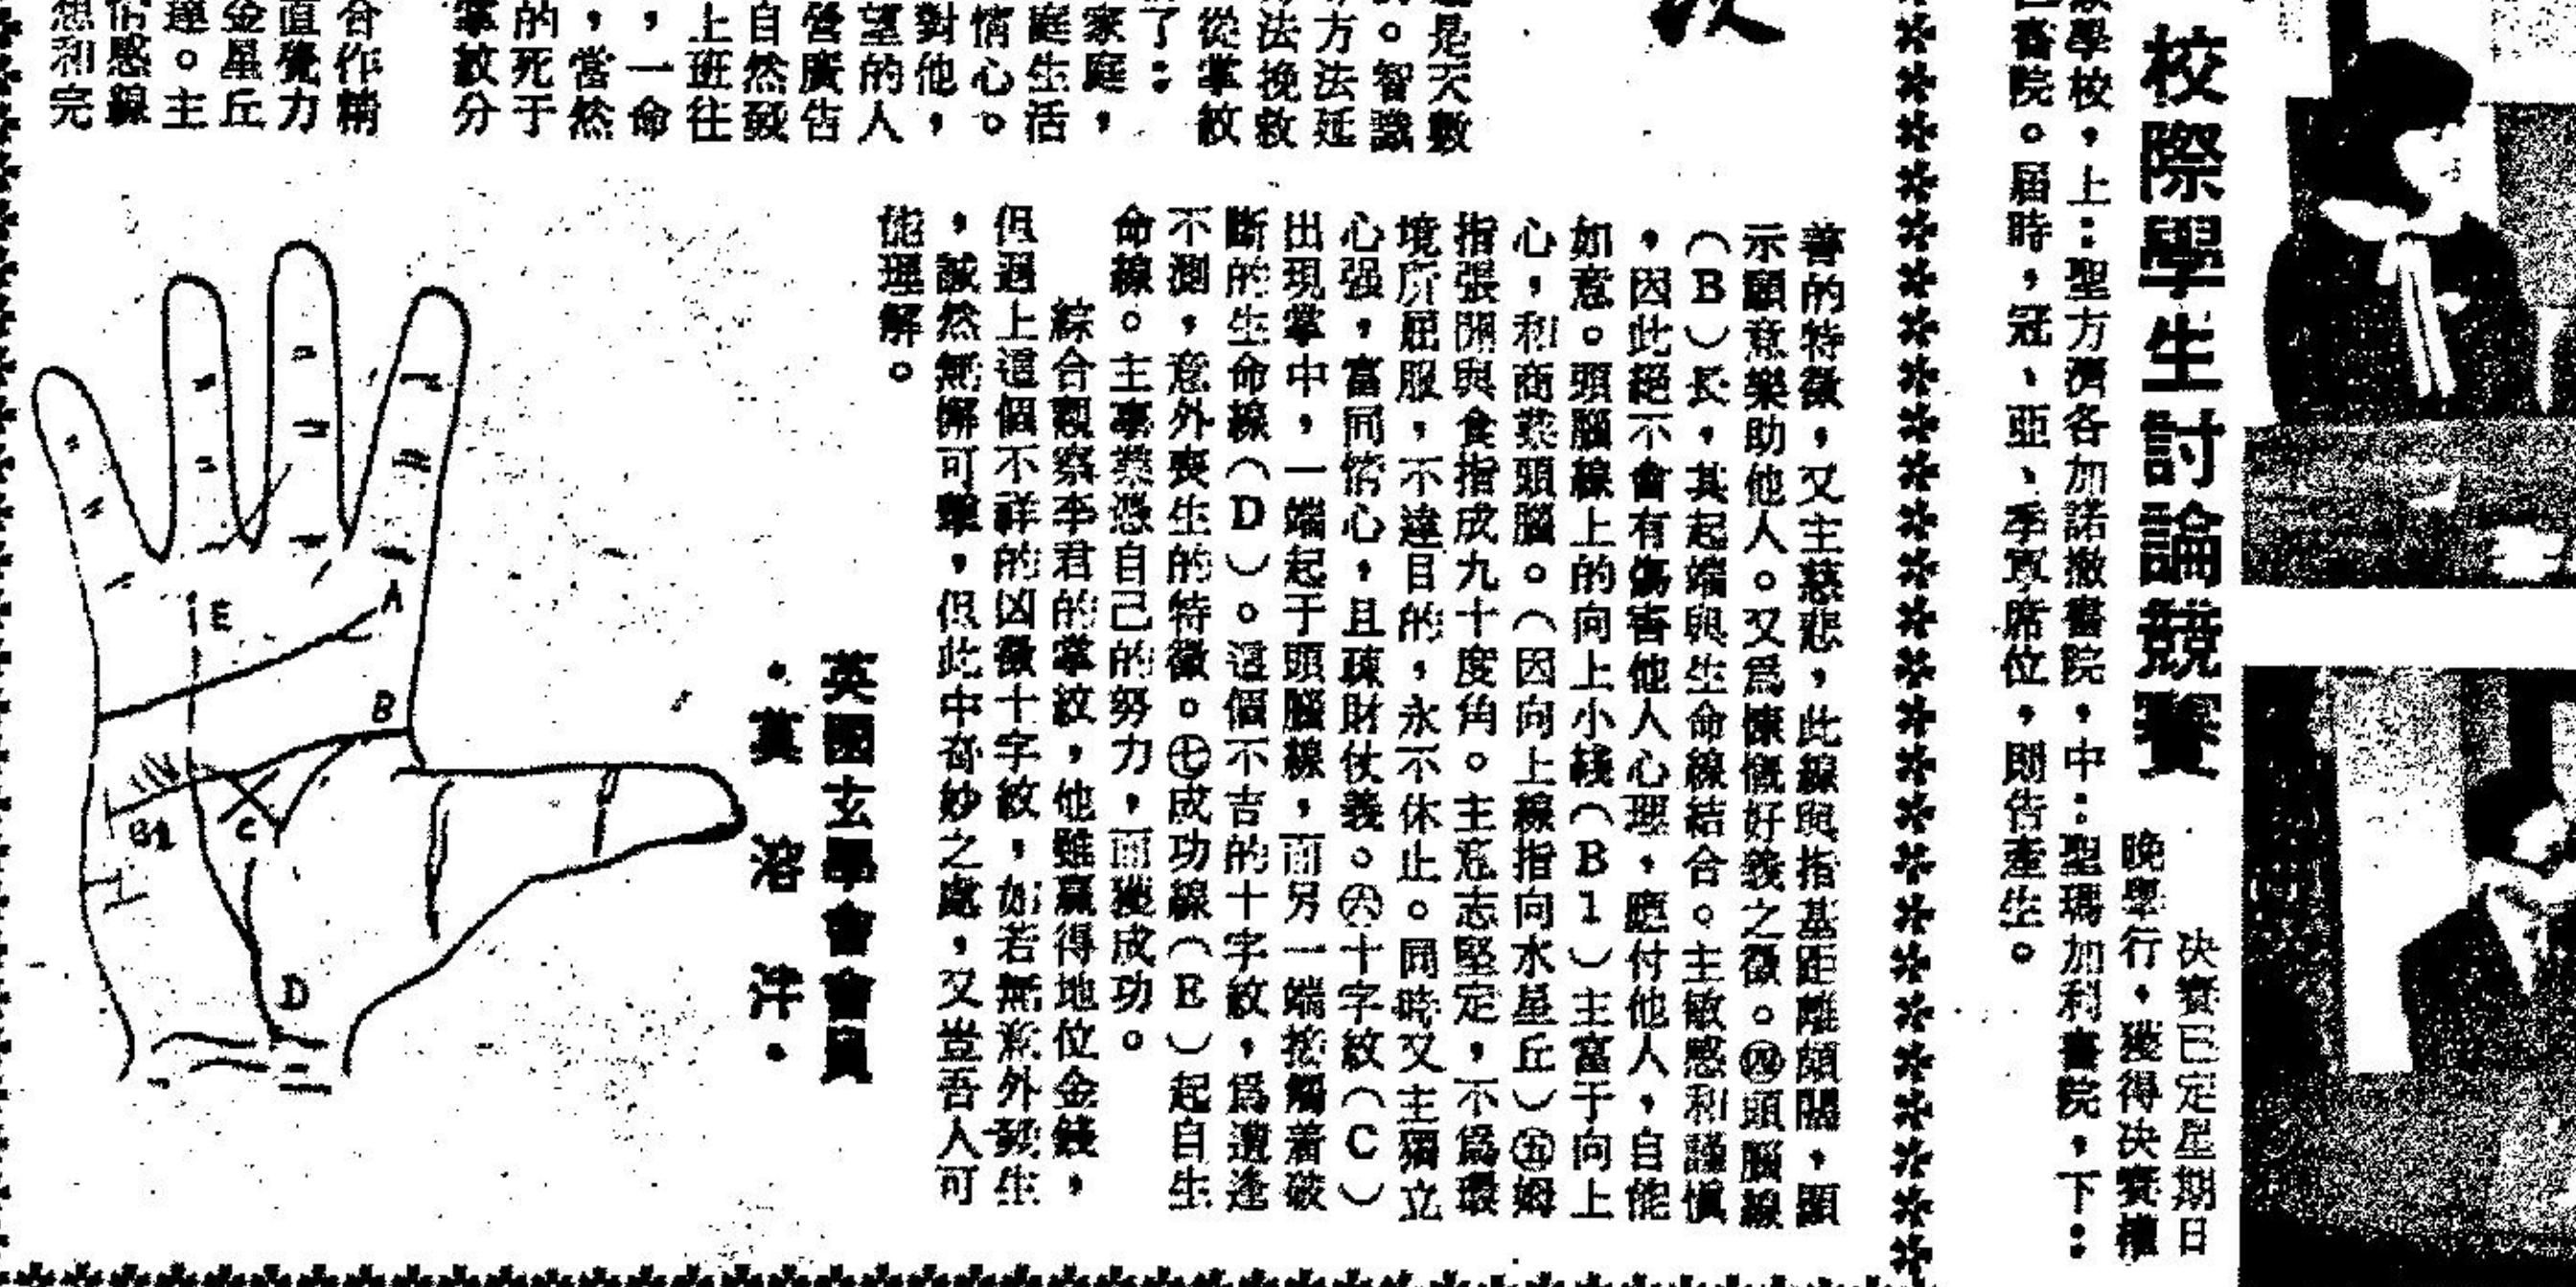 校際學生討論競賽
決賽已定星期日
晚舉行，獲得決賽權
學校，上：聖方濟各加諾撒書院，中：聖瑪加利書院，下：
書院。屆時，冠、亞、季軍席位，即告產生。
是天數
。智識
方法延
法挽救
從掌紋
了：
家庭，
庭生活
情心。
對他，
望的人
營廣告
自然發
上班往
，一命
，當然
的死于
掌紋分
合作精
直覺力
金星丘
。主
情感線
想和完
善的特徵，又主慈悲，此線與指基距離頗闊，顯
示願意樂助他人。又爲慷慨好義之徵。㊃頭腦線
（B）長，其起端與生命線結合。主敏感和謹慎
，因此絕不會有傷害他人心理，應付他人，自能
如意。頭腦線上的向上小綫（B1）主富于向上
心，和商業頭腦。（因向上線指向水星丘）㊄姆
指張開與食指成九十度角。主意志堅定，不爲環
境所屈服，不達目的，永不休止。同時又主獨立
心强，富同情心，且疎財仗義。㊅十字紋（C）
出現掌中，一端起于頭腦線，而另一端接觸着破
斷的生命線（D）。這個不吉的十字紋，爲遭逢
不測，意外喪生的特徵。㊆成功線（E）起自生
命線。主事業憑自己的努力，而獲成功。
綜合觀察李君的掌紋，他雖贏得地位金錢，
但遇上這個不祥的凶徵十字紋，如若無意外發生
，誠然無懈可擊，但此中奇妙之處，又豈吾人可
能理解。
英國玄學會會員
溶洋
A
B
B1
C
D
E